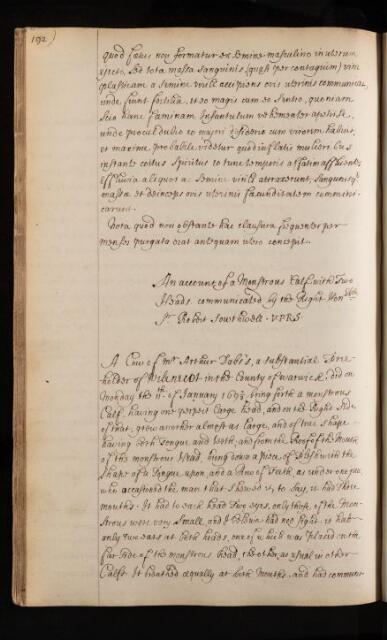 192)
quod fœtus non formatur ex semine masculino in uterum
sed tota massa sanguinis (quasi per contagium) vim
plasticam a semine virili accipiens ovis uterinis communicat
unde fiunt fertilia, et eo magis cum eo sentio, quoniam
scio hanc fæminam Infantulum vehementer
unde procul dubio eo majori desiderio cum virorum habuit,
et maxime probabile videtur quod in mulieribus
instante coitus spiritus eo tunc temporis
effluvia aliquot a semine virili attraxerunt, sanguinisq
massa et deinceps ovis uterinis fæcunditatem communi
carunt.
Nota quod non obstante hac clausura frequenter per
menses purgata erat antequam vero concepit.
An account of a Monstrous Calf with Two
Heads communicated by the Right Honble
Sr Robert Southwell. V.P.R.S.
A Cow of Mr Arthur a substantial Free-
holder of in the County of Warwick, did on
Monday the of January bring forth a monstrous
Calf, having one perfect large head, and on the Right side
of that, grew another almost as large, and of true shape
having both tongue and teeth, and from the Roof of the Mouth
of the monstrous Head, hung down a piece of flesh with the
shape of a Tongue upon, and a Row of Teeth, as under one jaw
who occasioned the man that shewed it, to say, it had Three
mouths. It had to each head Two eyes, only those of the Mon-
strous were very Small, and I believe had no sight. it had
only two ears at both heads, one of which was placed on the
far side of the monstrous head, the other as usual in other
Calfs It breathed equally at both Mouths, and had commun